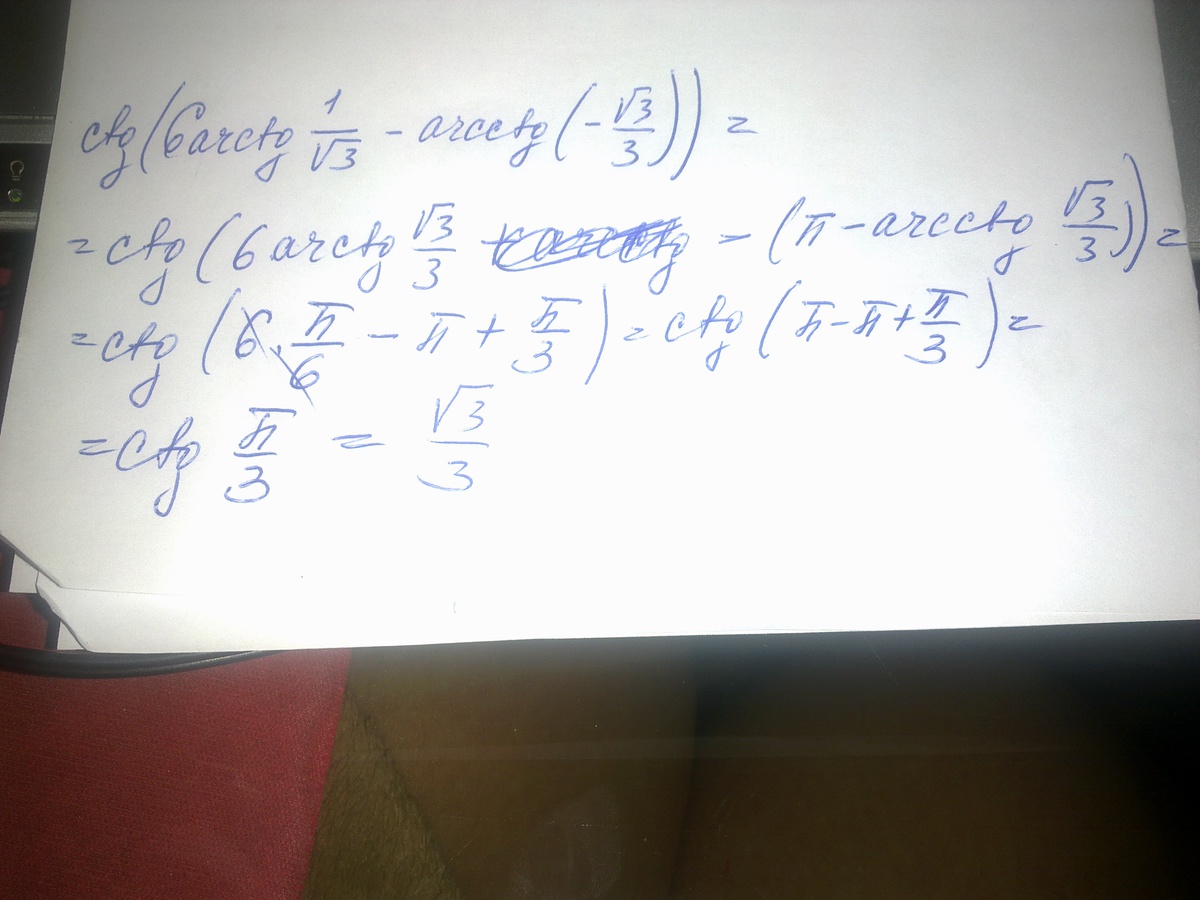 ctg(6arctg 1/√3 - arcctg(-√3/3)) =
= ctg(6arctg √3/3 - (π - arcctg √3/3)) =
= ctg(6·π/6 - π + π/3) = ctg(π-π+π/3) =
= ctg π/3 = √3/3